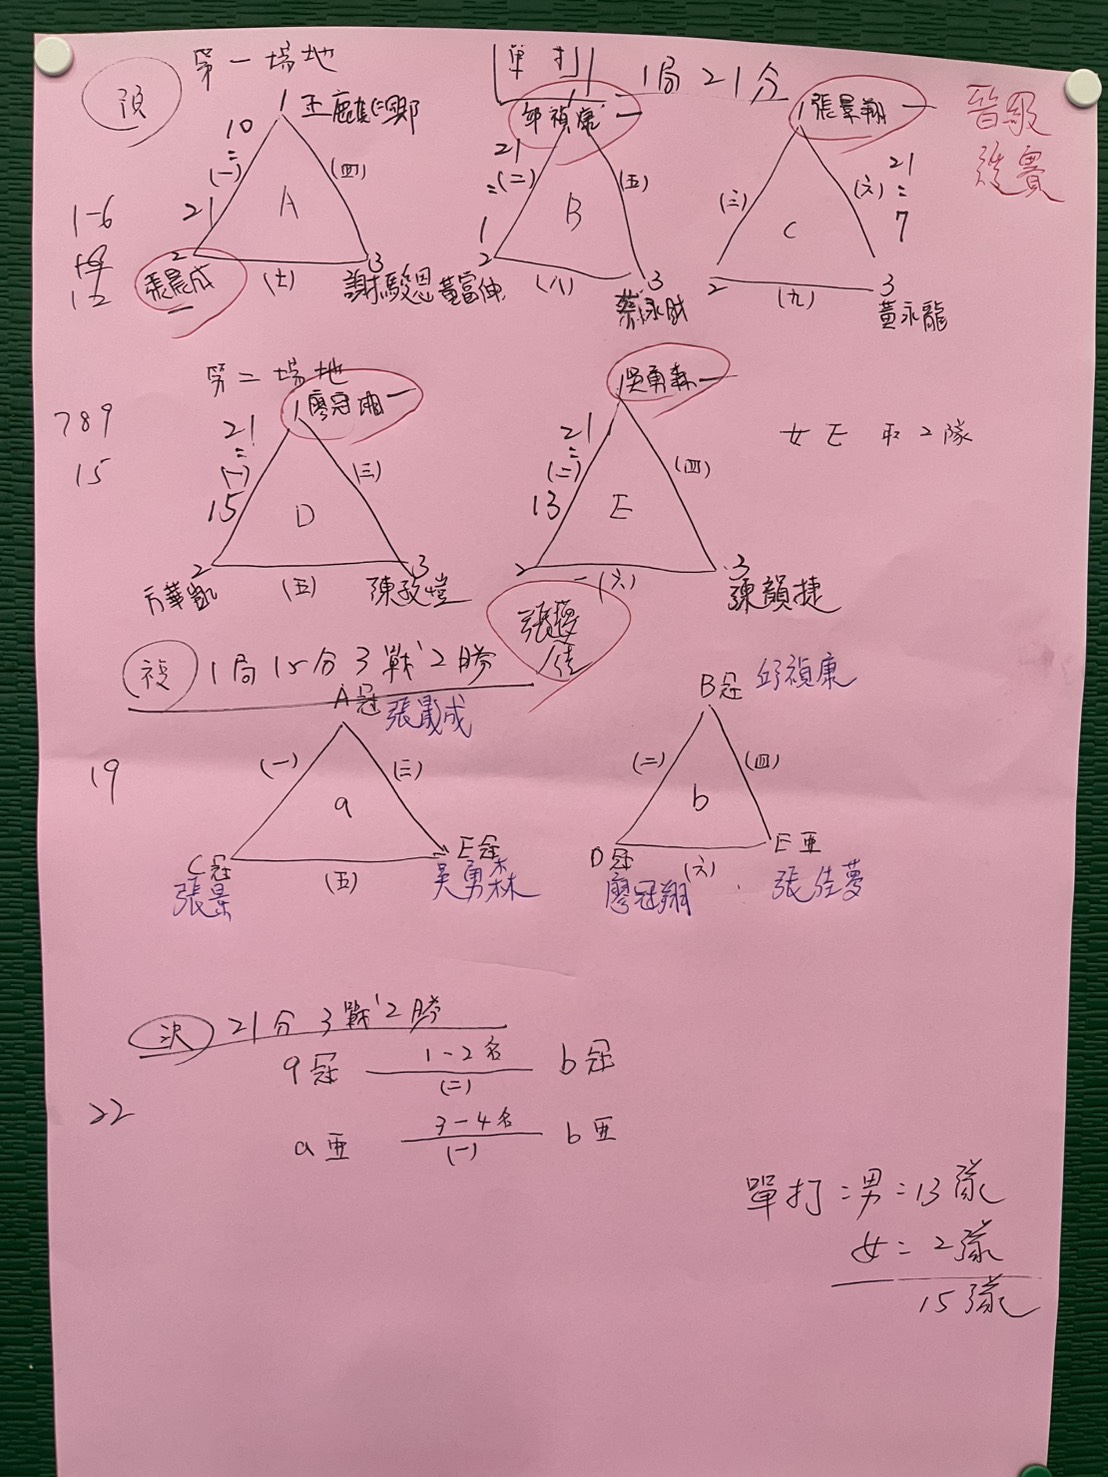 預
第一場地
單打
1局21分
晉級
1
10
=
(一)
21
A
(四)
2
張晨成
(七)
3
謝駿恩
1-6
12
邱禎康
21
=
(二)
1
B
(五)
2
黃富伸
(八)
3
蔡泳
1張景翔
(三)
C
(六)
21
=
7
2
(九)
3
黃永龍
第二場地
789
15
1廖冠
21
=
(一)
15
D
(三)
2
方華凱
(五)
3
陳
1吳勇森
21
=
(二)
13
E
(四)
2
(六)
3
陳韻捷
張
佳
女E 取2隊
複 1局15分3戰2勝
19
A冠 張晟成
(一)
a
(三)
C冠
張景
(五)
E冠
吳勇森
B冠 邱禎康
(二)
b
(四)
D冠
廖冠翔
(六)
E亞
張佳夢
決 21分3戰2勝
a冠 1-2名 b冠
(二)
22
a亞 3-4名 b亞
(一)
單打=男=13隊
女=2隊
15隊